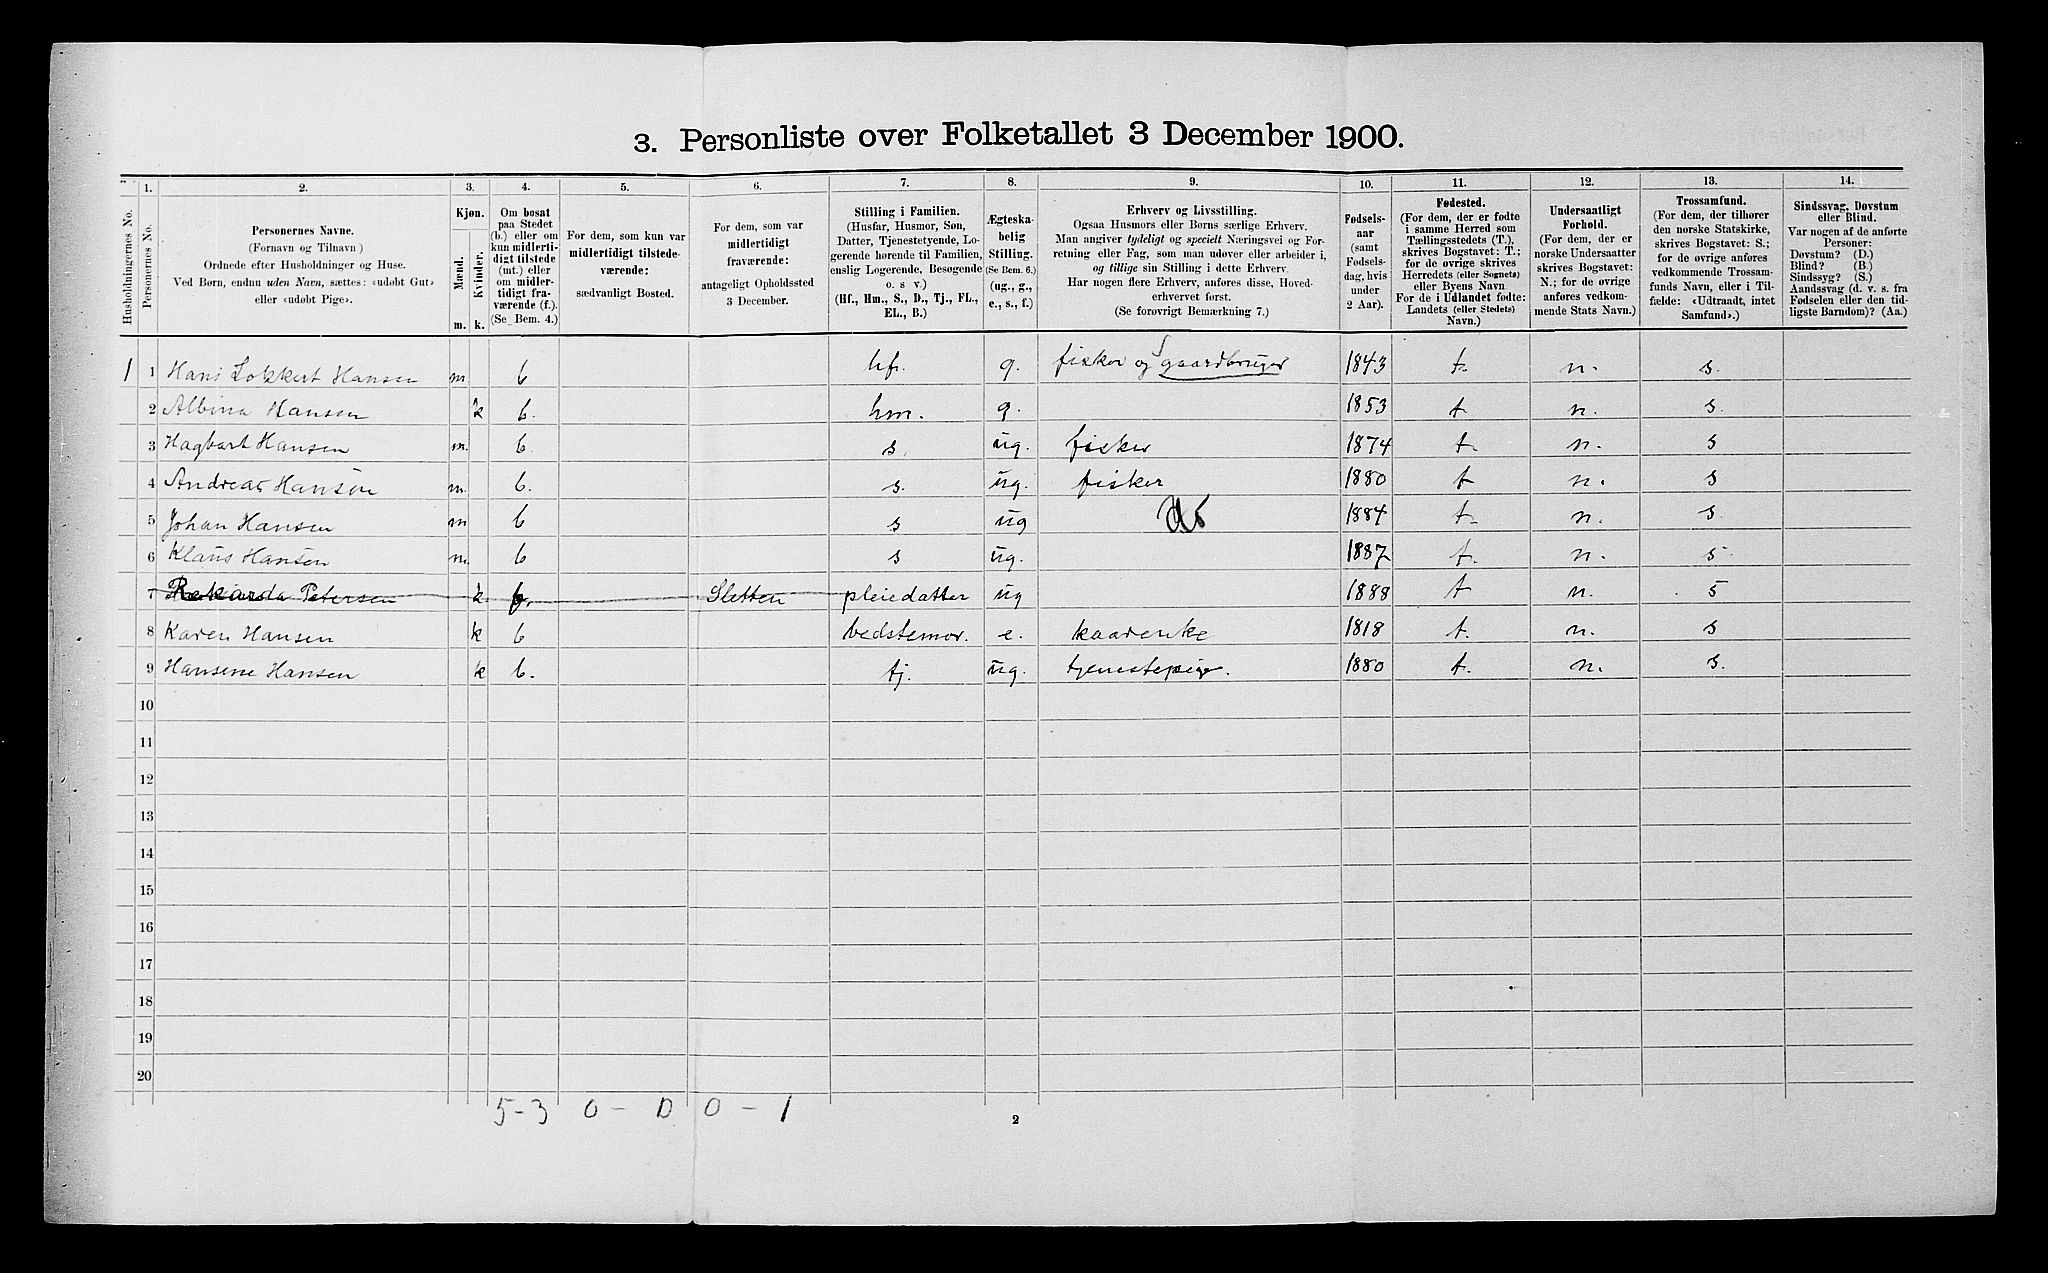 3. Personliste over Folketallet 3 December 1900.
1. 2. 3. 4. 5. 6. 7. 8. 9. 10. 11. 12. 13. 14.
Husholdningernes No.
Personernes No.
Personernes Navne.
(Fornavn og Tilnavn)
Ordnede efter Husholdninger og Huse.
Ved Børn, endnu uden Navn, sættes: «udøbt Gut»
eller «udøbt Pige».
Kjøn.
Mænd.
Kvinder.
m. k.
Om bosat
paa Stedet
(b.) eller om
kun midlerti-
digt tilstede
(mt.) eller
om midler-
tidigt fra-
værende (f.).
(Se Bem. 4.)
For dem, som kun var
midlertidigt tilstede-
værende:
sædvanligt Bosted.
For dem, som var
midlertidigt
fraværende:
antageligt Opholdssted
3 December.
Stilling i Familien.
(Husfar, Husmor, Søn,
Datter, Tjenestetyende, Lo-
gerende hørende til Familien,
enslig Logerende, Besøgende
o. s v.)
(Hf., Hm., S., D., Tj., FL.,
EL., B.)
Ægteska-
belig
Stilling.
(Se Bem. 6.)
(ug., g.,
e., s., f.)
Erhverv og Livsstilling.
Ogsaa Husmors eller Børns særlige Erhverv.
Man angiver tydeligt og specielt Næringsvei og For-
retning eller Fag, som man udøver eller arbeider i,
og tillige sin Stilling i dette Erhverv.
Har nogen flere Erhverv, anføres disse, Hoved-
erhvervet først.
(Se forøvrigt Bemærkning 7.)
Fødsels-
aar
(samt
Fødsels-
dag, hvis
under
2 Aar).
Fødested.
(For dem, der er fødte
i samme Herred som
Tællingsstedets (T.),
skrives Bogstavet: T.;
for de øvrige skrives
Herredets (eller Sognets)
eller Byens Navn
For de i Udlandet fødte:
Landets (eller Stedets)
Navn.)
Undersaatligt
Forhold.
(For dem, der er
norske Undersaatter
skrives Bogstavet:
N.; for de øvrige
anføres vedkom-
mende Stats Navn.)
Trossamfund.
(For dem, der tilhører
den norske Statskirke,
skrives Bogstavet: S.;
for de øvrige anføres
vedkommende Trossam-
funds Navn, eller i Til-
fælde: «Udtraadt, intet
Samfund».)
Sindssvag, Døvstum
eller Blind.
Var nogen af de anførte
Personer:
Døvstum? (D.)
Blind? (B.)
Sindssyg? (S.)
Aandssvag (d. v. s. fra
Fødselen eller den tid-
ligste Barndom)? (Aa.)
1 1 Hans Lokkert Hansen m. b hf. g. fisker og gaardbruger 1843 t. n. s.
2 Albina Hansen k b. hm. g. 1853 t n. s.
3 Hagbart Hansen m. b. s. ug. fisker 1874 t. n. s
4 Andreas Hansen m. b. s. ug. fisker 1880 t n. s
5 Johan Hansen m b s ug 1884 t. n. s.
6 Klaus Hansen m. b s ug. 1887 t. n. s.
7 Rekarda Petersen k. Sletten pleiedatter ug 1888 t n. s
8 Karen Hansen k b bedstemor. e. kaarenke 1818 t. n. s
9 Hansene Hansen k b. tj. ug. tjenestepige. 1880 t. n. s.
10
11
12
13
14
15
16
17
18
19
20
5-3 0 - 0 0 - 1
2